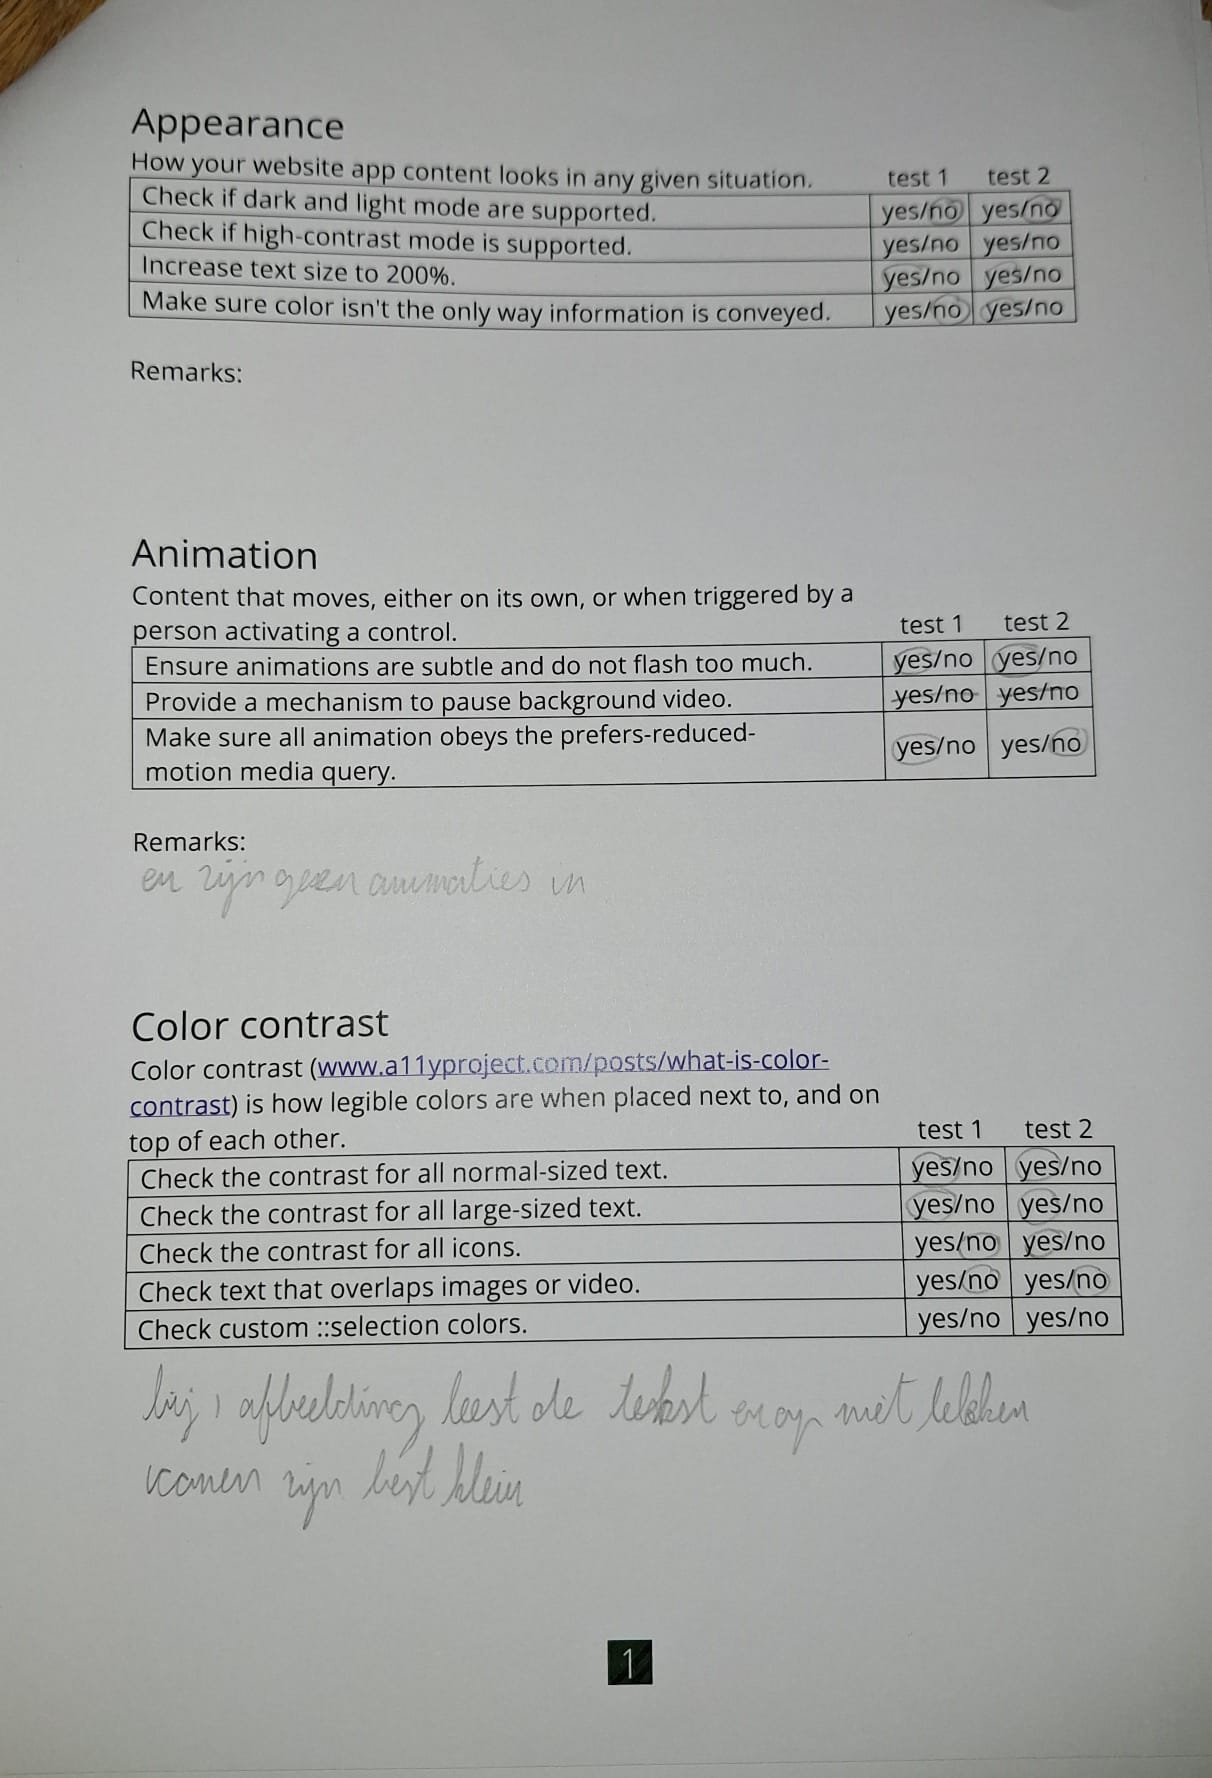 Appearance
How your website app content looks in any given situation. test 1 test 2
Check if dark and light mode are supported. yes/no yes/no
Check if high-contrast mode is supported. yes/no yes/no
Increase text size to 200%. yes/no yes/no
Make sure color isn't the only way information is conveyed. yes/no yes/no
Remarks:
Animation
Content that moves, either on its own, or when triggered by a
person activating a control. test 1 test 2
Ensure animations are subtle and do not flash too much. yes/no yes/no
Provide a mechanism to pause background video. yes/no yes/no
Make sure all animation obeys the prefers-reduced-
motion media query. yes/no yes/no
Remarks:
er zijn geen animaties in
Color contrast
Color contrast (www.a11yproject.com/posts/what-is-color-
contrast) is how legible colors are when placed next to, and on
top of each other. test 1 test 2
Check the contrast for all normal-sized text. yes/no yes/no
Check the contrast for all large-sized text. yes/no yes/no
Check the contrast for all icons. yes/no yes/no
Check text that overlaps images or video. yes/no yes/no
Check custom ::selection colors. yes/no yes/no
bij 1 afbeelding leest de tekst erop niet lekker
iconen zijn best klein
1